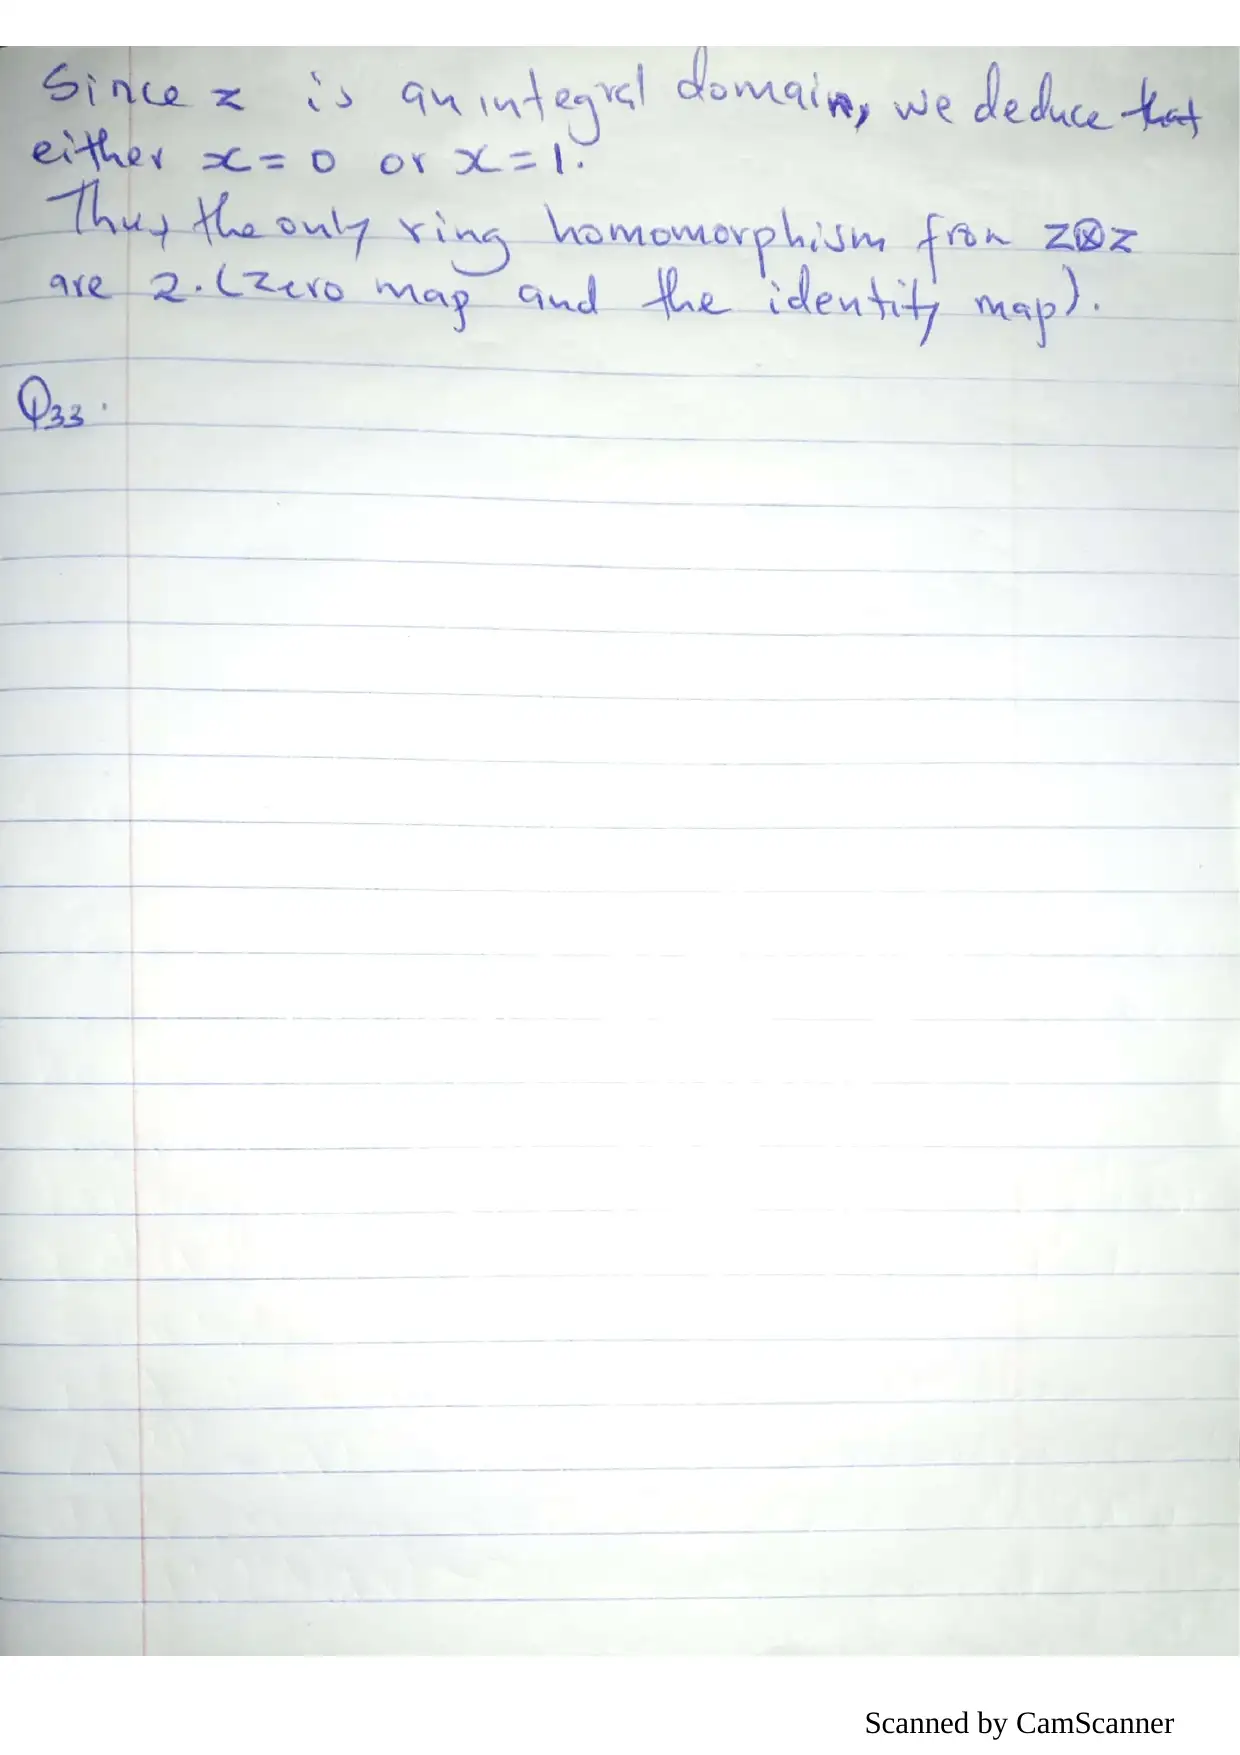 Since z is an integral domain, we deduce that
either x = 0 or x = 1.
Thus the only ring homomorphism from Z⊗Z
are 2. (Zero map and the identity map).
Q33.
Scanned by CamScanner